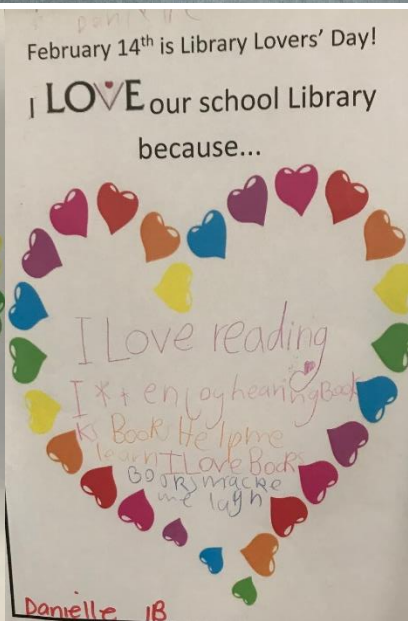 Danielle
February 14th is Library Lovers' Day!
I LOVE our school Library
because...
I Love reading
I * t enjoy hearing Book
K Books Help me
learn I Love Books
Books macke
me lagh
Danielle 1B